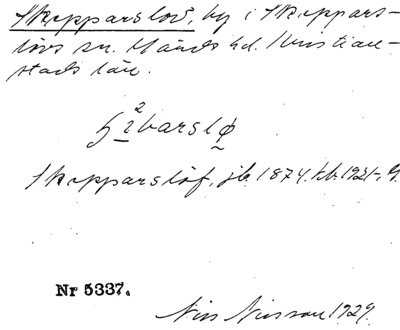 Skepparslöv, by i Skeppars-
lövs sn. Gärds hd. Kristian-
stads län.
Skepparslöf, jb. 1874.
Nr 5337.
Nils Nilsson 1929.